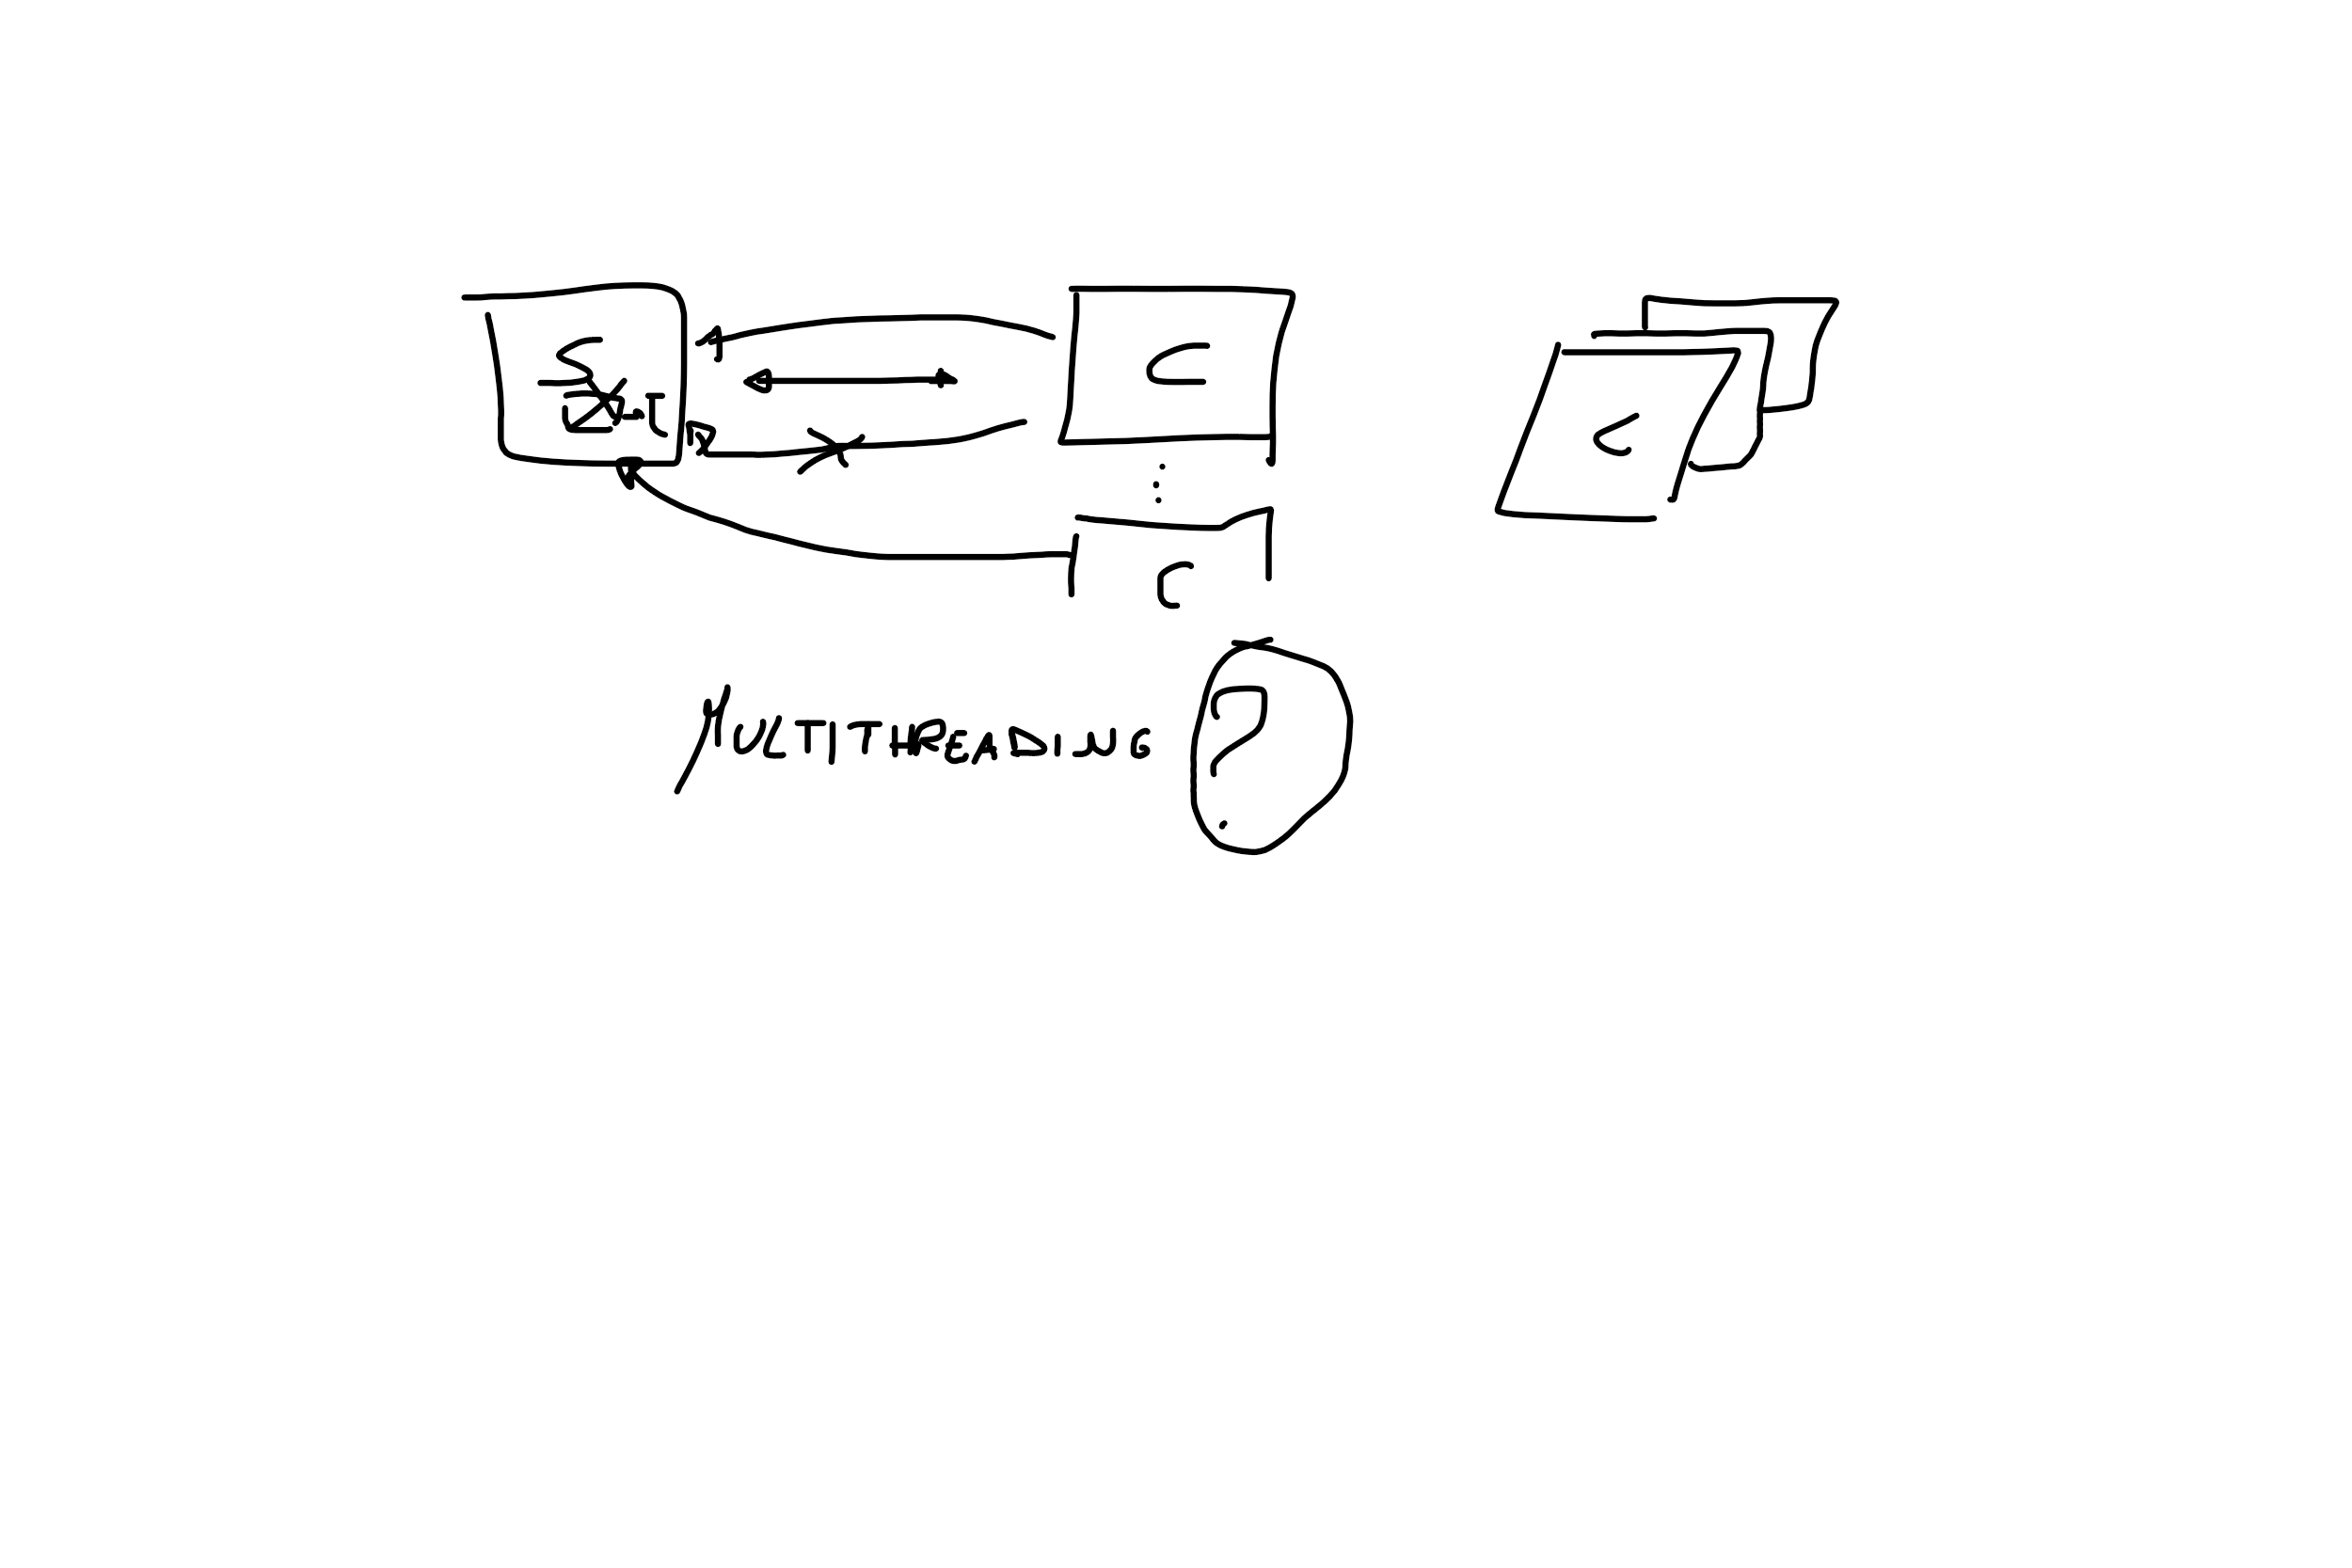 S
C
C
C
MULTITHREADING ?